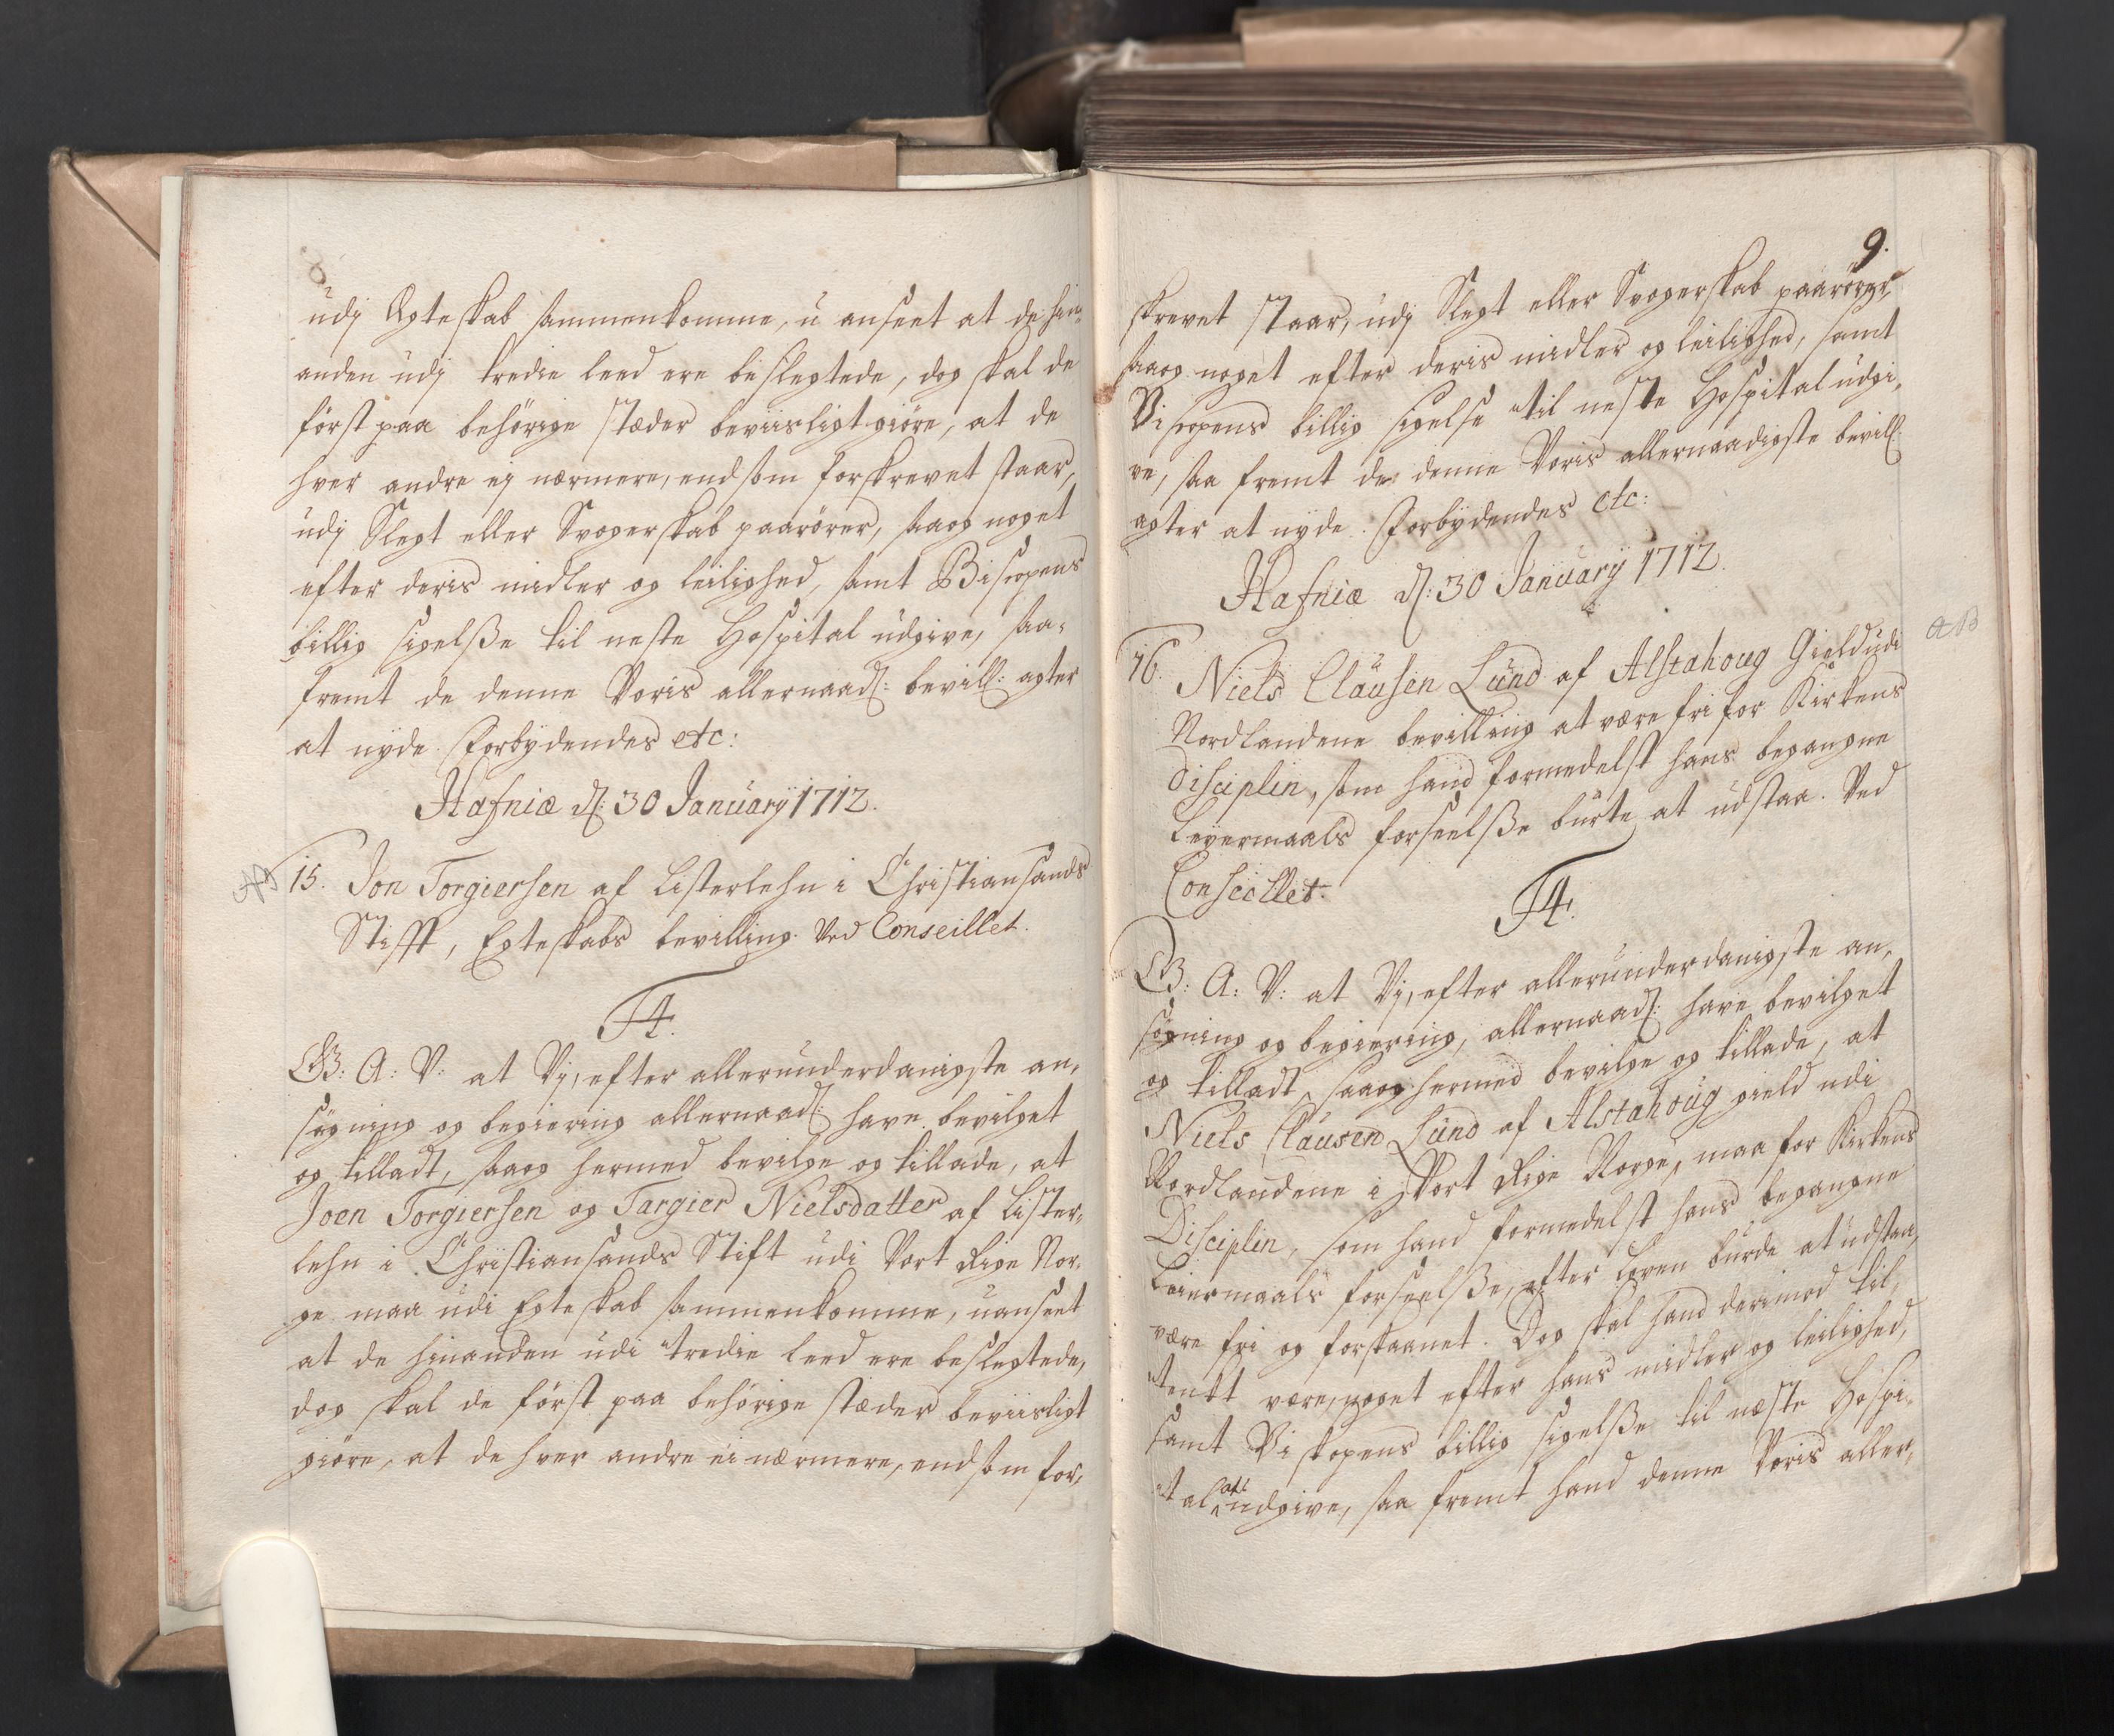 udj Egteskab sammenkomme, u anseet at de hin-
anden udj tredie leed ere beslegtede, dog skal de
först paa behörige stæder beviisligt giöre, at de
hver andre ej nærmere, end som forskrevet staar,
udj Slegt eller Svogerskab paarörer, saa og noget
efter deris midler og leilighed, samt Biscopens
billig sigelße til neste Hospital udgive, saa-
fremt de denne Voris allernaad: bevill: agter
at nyde. Forbydendes etc:
Hafniæ d: 30 January 1712.
15. Jon Torgiersen af Listerlehn i Christiansands
Stifft, Egteskabs bevilling. Ved Conseillet.
F4.
G: A: V: at Vj, efter allerunderdanigste an-
sögning og begiering allernaad: have bevilget
og tilladt, saa og hermed bevilge og tillade, at
Joen Torgiersen og Targier Nielsdatter af Lister-
lehn i Christiansands Stift udi Vort Rige Nor-
ge maa udi Egteskab sammenkomme, uanseet
at de hinanden udi tredie leed ere beslegtede,
dog skal de först paa behörige stæder beviisligt
giöre, at de hver andre ei nærmere, end som for-
9.
skrevet staar, udj Slegt eller Svogerskab paarörer,
saa og noget efter deris midler og leilighed, samt
Biscopens billig sigelse til neste Hospital udgi-
ve, saa fremt de denne Voris allernaadigste bevill:
agter at nyde. Forbydendes etc:
Hafniæ d: 30 January 1712.
16. Niels Clausen Lund af Alstahoug Gield udi
Nordlandene bevilling at være fri for Kirkens
Disciplin, som hand formedelst hans begangne
Leyermaals forseelße burte at udstaa. Ved
Conseillet.
F4.
G: A: V: at Vj, efter allerunderdanigste an-
sögning og begiering, allernaad: have bevilget
og tilladt, saa og hermed bevilge og tillade, at
Niels Clausen Lund af Alstahoug gield udi
Nordlandene i Vort Rige Norge, maa for Kirkens
Disciplin, som hand formedelst hans begangne
Leiermaals forseelße, efter Loven burde at udstaa,
være fri og forskaanet. Dog skal hand derimod til-
tenkt være, noget efter hans midler og leilighed,
samt Biskopens billig sigelße til næste Hospi-
tal at udgive, saa fremt hand denne Voris aller-